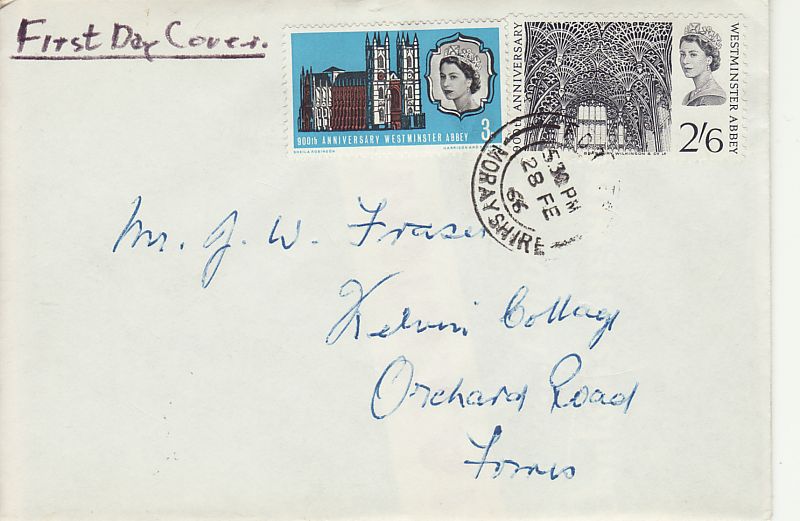 First Day Cover.
900th ANNIVERSARY WESTMINSTER ABBEY 3
SHEILA ROBINSON HARRISON AND
ANNIVERSARY
WESTMINSTER ABBEY
2/6
WILKINSON & Co Ld
MORAYSHIRE
5.30 PM
28 FE
66
Mr. J. W. Fraser
Kelvin Cottage
Orchard Road
Forres